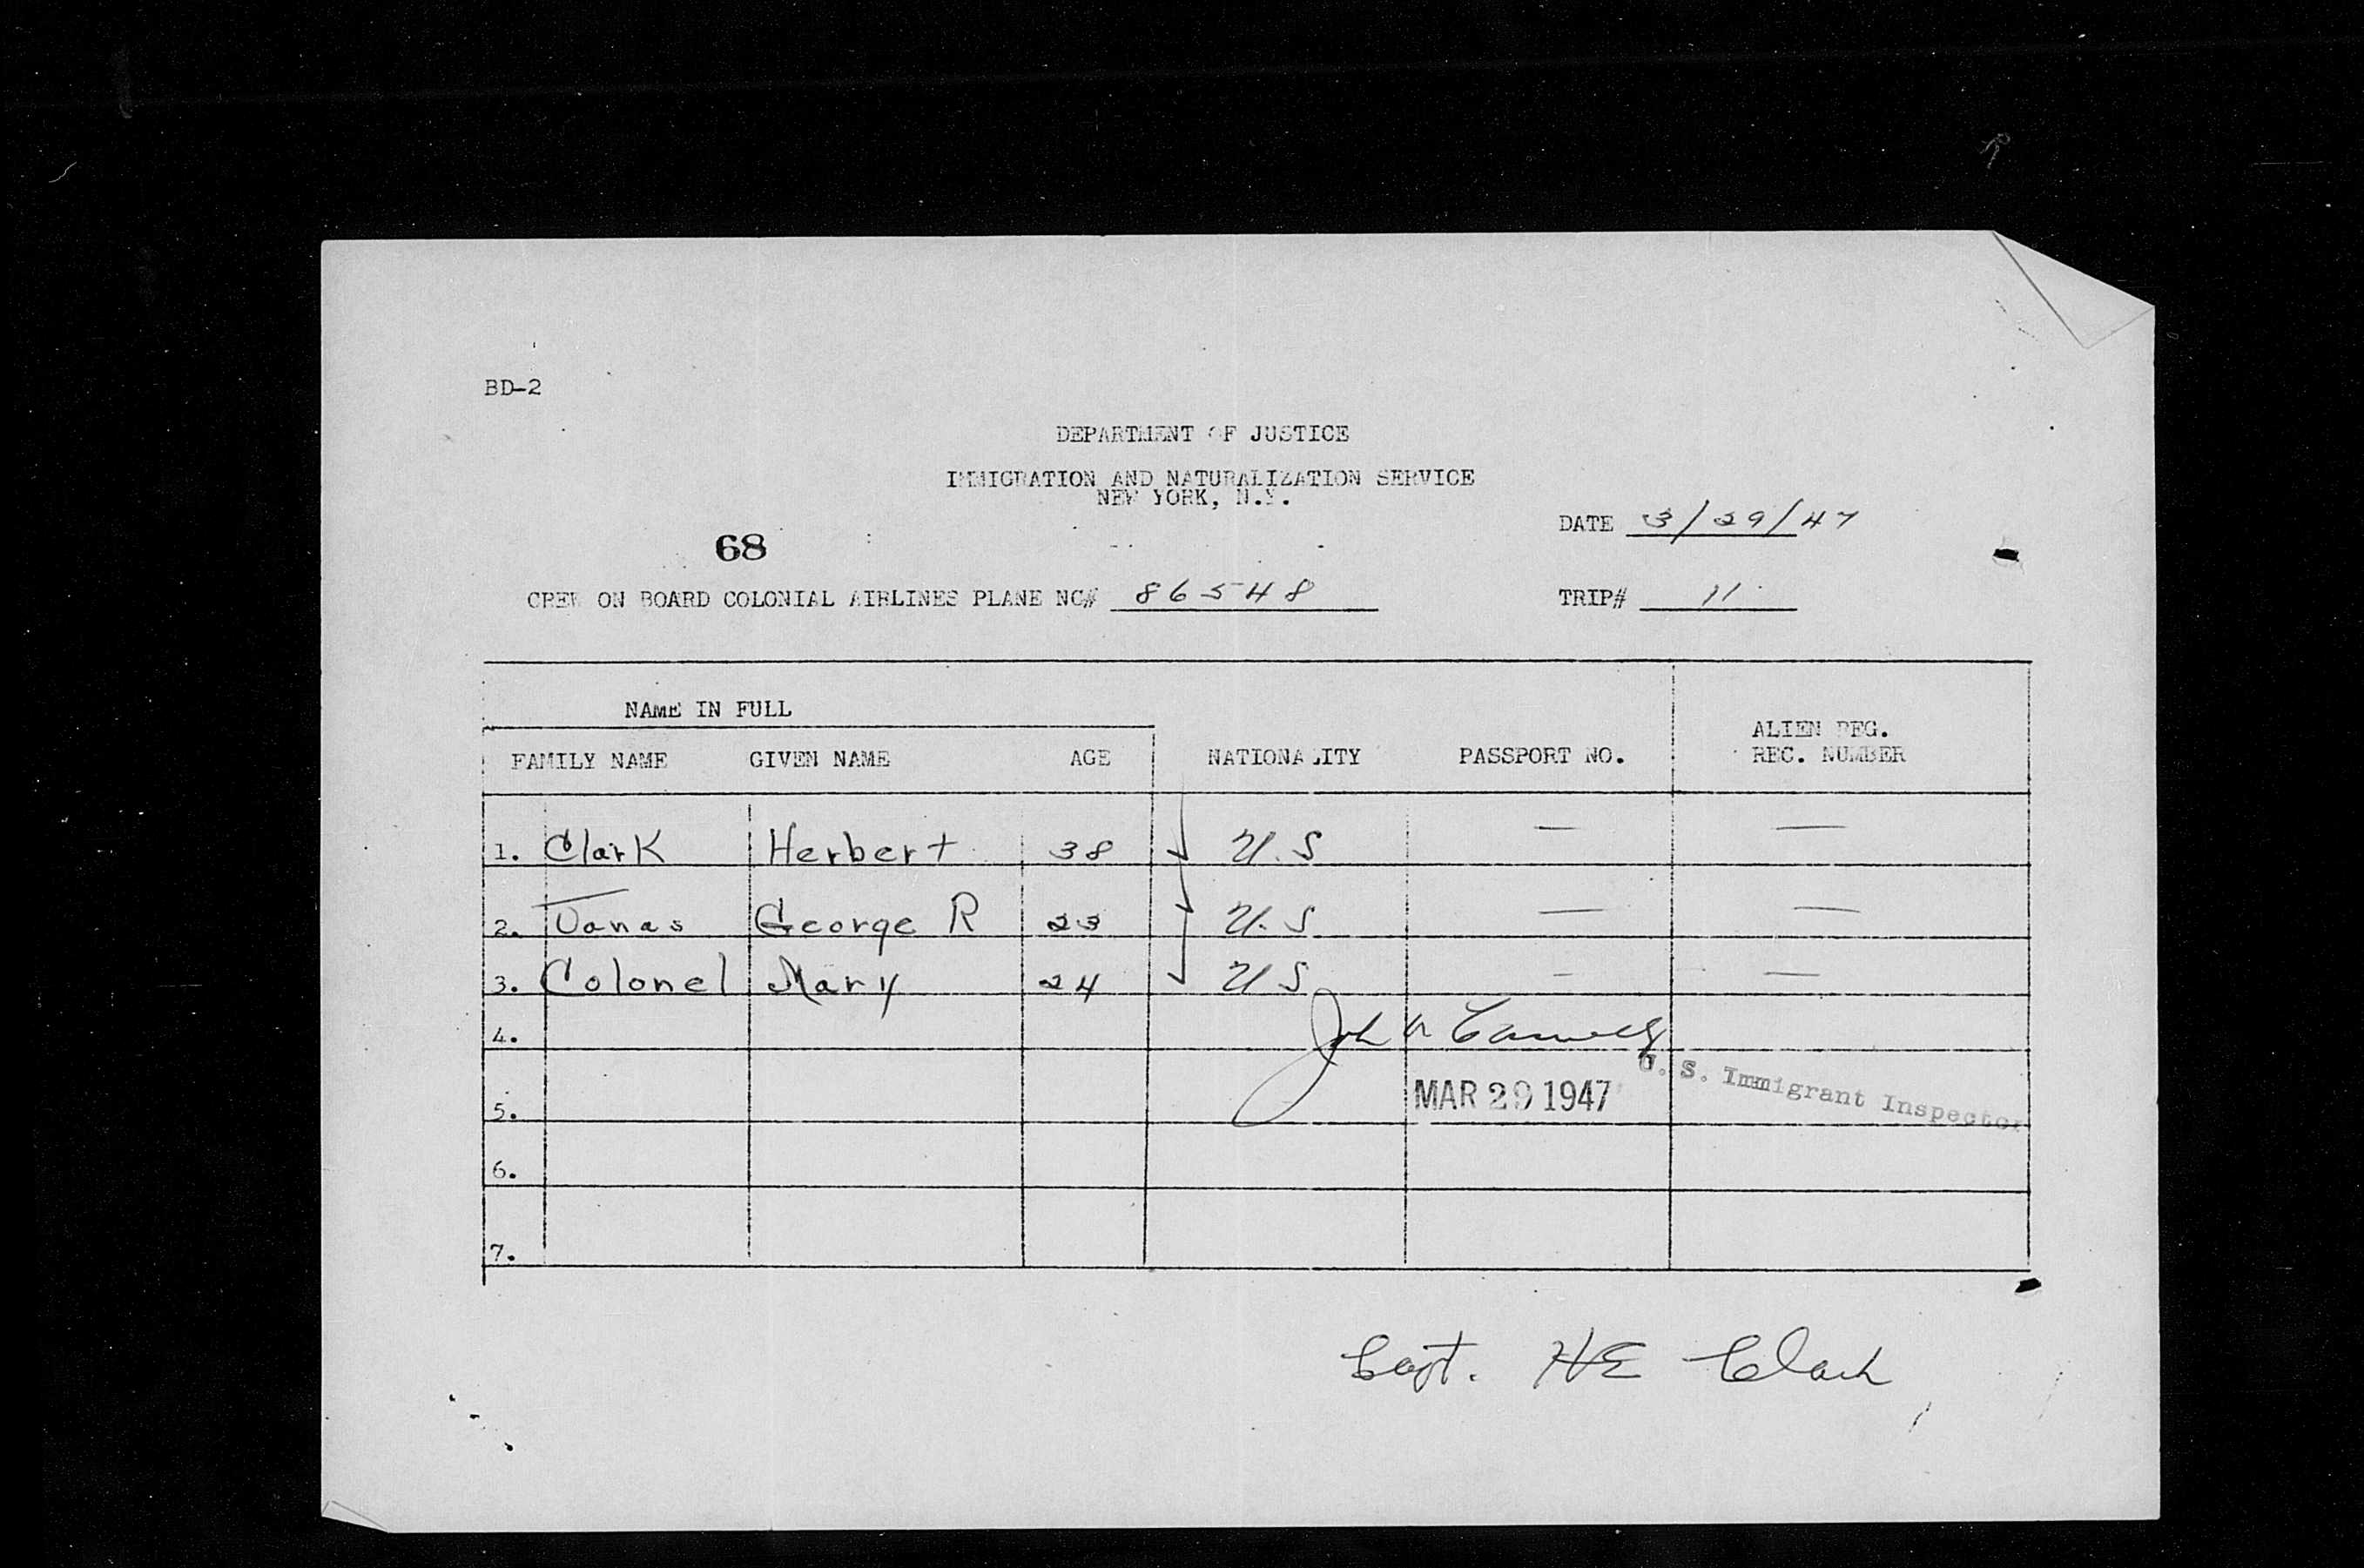 BD-2
DEPARTMENT OF JUSTICE
IMMIGRATION AND NATURALIZATION SERVICE
NEW YORK, N.Y.
DATE 3/29/47
68
CREW ON BOARD COLONIAL AIRLINES PLANE NC# 86548 TRIP# 11
NAME IN FULL
FAMILY NAME GIVEN NAME AGE NATIONALITY PASSPORT NO. ALIEN REG. REC. NUMBER
1. Clark Herbert 38 U.S — —
2. Janas George R 23 U.S. — —
3. Colonel Mary 24 U S — —
4. John
5. MAR 29 1947 U. S. Immigrant Inspector
6.
7.
Capt. HE Clark